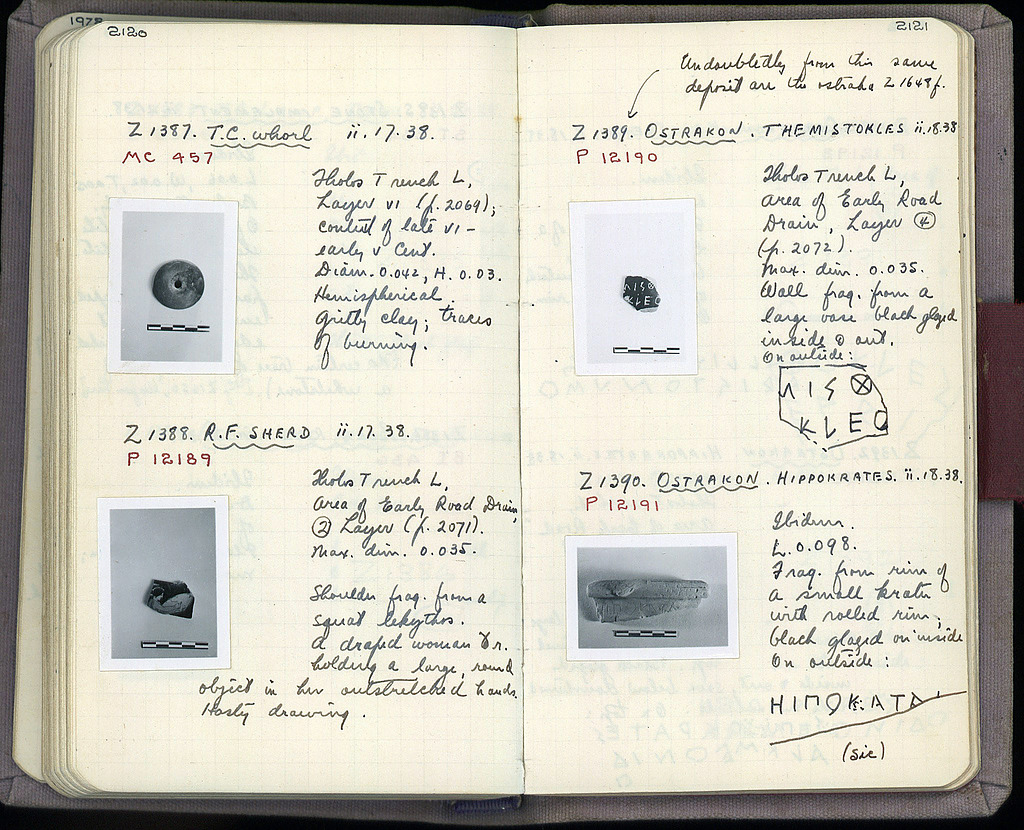 1978
2120
Z 1387. T.C. whorl ii.17.38.
MC 457
Tholos Trench L,
Layer VI (p. 2069);
context of late VI –
early V Cent.
Diam. 0.042, H. 0.03.
Hemispherical.
Gritty clay; traces
of burning.
Z 1388. R.F. SHERD ii.17.38.
P 12189
Tholos Trench L,
Area of Early Road Drain,
② Layer (p. 2071).
Max. dim. 0.035.
Shoulder frag. from a
squat lekythos.
A draped woman to r.
holding a large, round
object in her outstretched hands.
Hasty drawing.
2121
Undoubtedly from this same
deposit are the ostraka Z 1648f.
Z 1389. OSTRAKON. THEMISTOKLES ii.18.38
P 12190
Tholos Trench L,
area of Early Road
Drain, Layer ④
(p. 2072).
Max. dim. 0.035.
Wall frag. from a
large vase black glazed
inside & out.
On outside:
ΛΙS⊗
KLEO
Z 1390. OSTRAKON. HIPPOKRATES. ii.18.38.
P 12191
Ibidem.
L. 0.098.
Frag. from rim of
a small krater
with rolled rim;
black glazed on inside
On outside:
ΗΙΠΟΚ:ΑΤΑ
(sic)